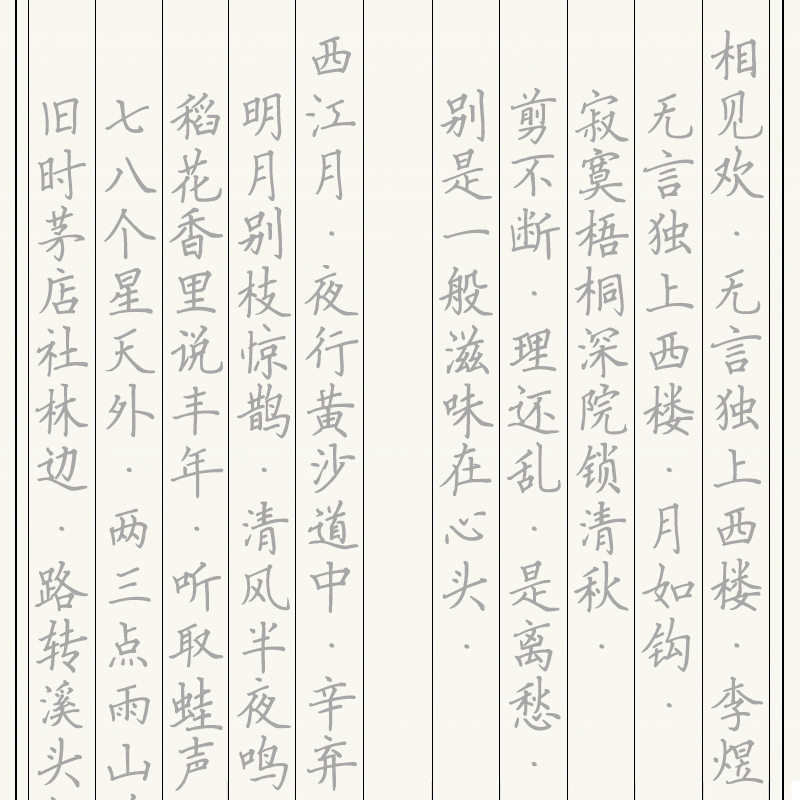 相见欢·无言独上西楼·李煜
无言独上西楼·月如钩·
寂寞梧桐深院锁清秋·
剪不断·理还乱·是离愁·
别是一般滋味在心头·
西江月·夜行黄沙道中·辛弃
明月别枝惊鹊·清风半夜鸣
稻花香里说丰年·听取蛙声
七八个星天外·两三点雨山
旧时茅店社林边·路转溪头